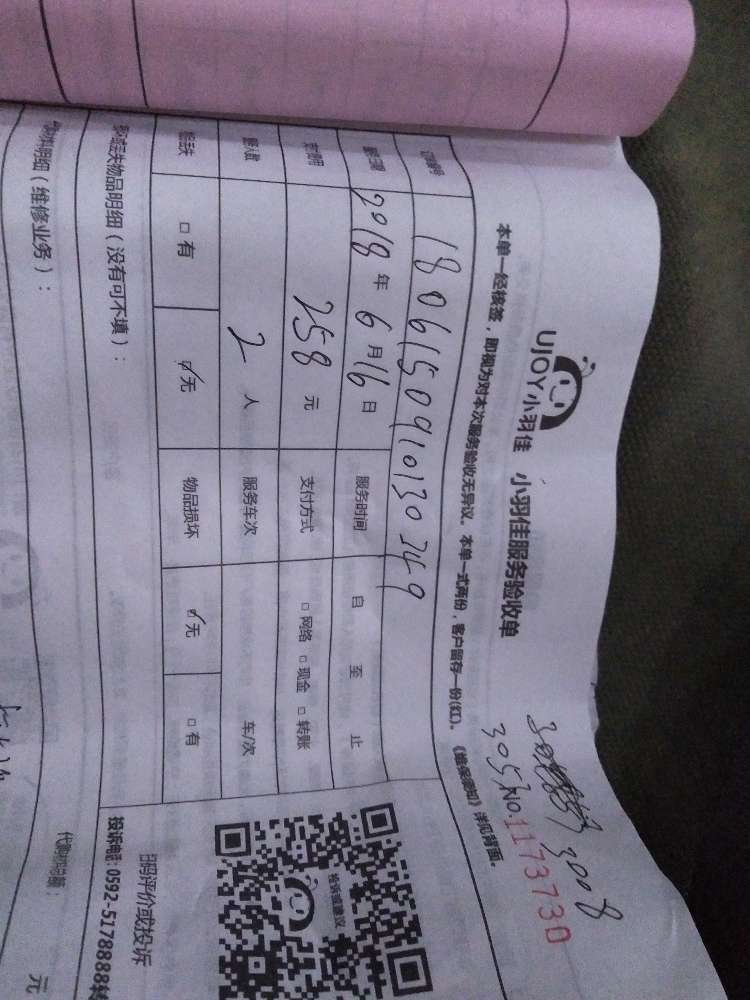 UJOY小羽佳 小羽佳服务验收单
3008
3057
No.1173730
本单一经核签，即视为对本次服务验收无异议。本单一式两份，客户留存一份(红)。《维保须知》详见背面。
订单编号 1806150910130249
服务日期 2018年6月16日 服务时间 自 至 止
支付费用 258元 支付方式 □网络 □现金 □转账
服务人数 2人 服务车次 车/次
□有 ☑无 物品损坏 ☑无 □有
丢失物品明细（没有可不填）：
材料明细（维修业务）：
投诉或建议
扫码评价或投诉
投诉电话：0592-5178888转
元